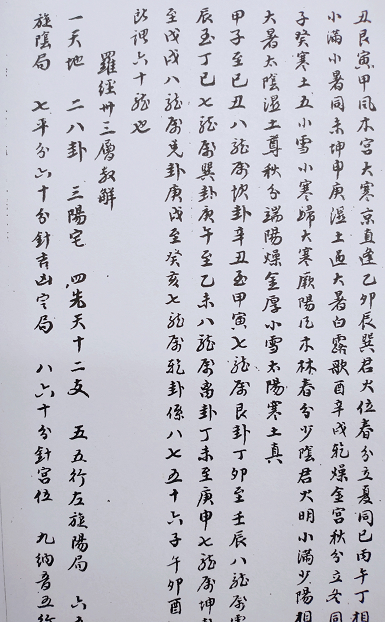 丑艮寅甲風木宮大寒京直逢乙卯巽君火位春分立夏同巳丙午丁相
小滿小暑同未坤申庚湿土通大暑白露歌酉辛戌乾燥金宮秋分立冬同
子癸寒土五小雪小寒歸大寒厥陽氏木林春分少陰君火明小滿少陽相
大暑太陰湿土尊秋分瑞陽燥金厚小雪太陽寒土真
甲子至巳丑八龍屬坎卦辛丑至甲寅七龍屬艮卦丁卯至壬辰八龍屬
辰至丁巳七龍屬巽卦庚午至乙未八龍屬离卦丁未至庚申七龍屬坤卦
至戊戌八龍屬兑卦庚戌至癸亥七龍屬乾卦係八七五十六子午卯酉
所謂六十龍也
羅經卅三層教解
一天地 二八卦 三陽宅 四先天十二支 五五行左旋陽局 六五
旋陰局 七平分六十分針吉凶定局 八六十分針宮位 九納音五行